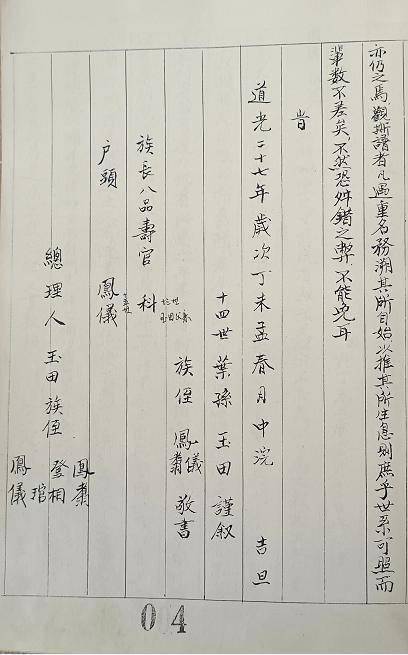 亦仍之焉觀斯譜者凡遇重名務溯其所自始以推其所生息則庶乎世系可照而
輩数不差矣不然恐舛錯之弊不能免耳
旹
道光二十七年歲次丁未孟春月中浣 吉旦
十四世葉孫 玉田 謹叙
族侄 鳳儀 鳳翥 敬書
族長八品壽官 科
户頭 鳳儀
總理人 玉田 族侄
鳳翥
登相
琯
鳳儀
04